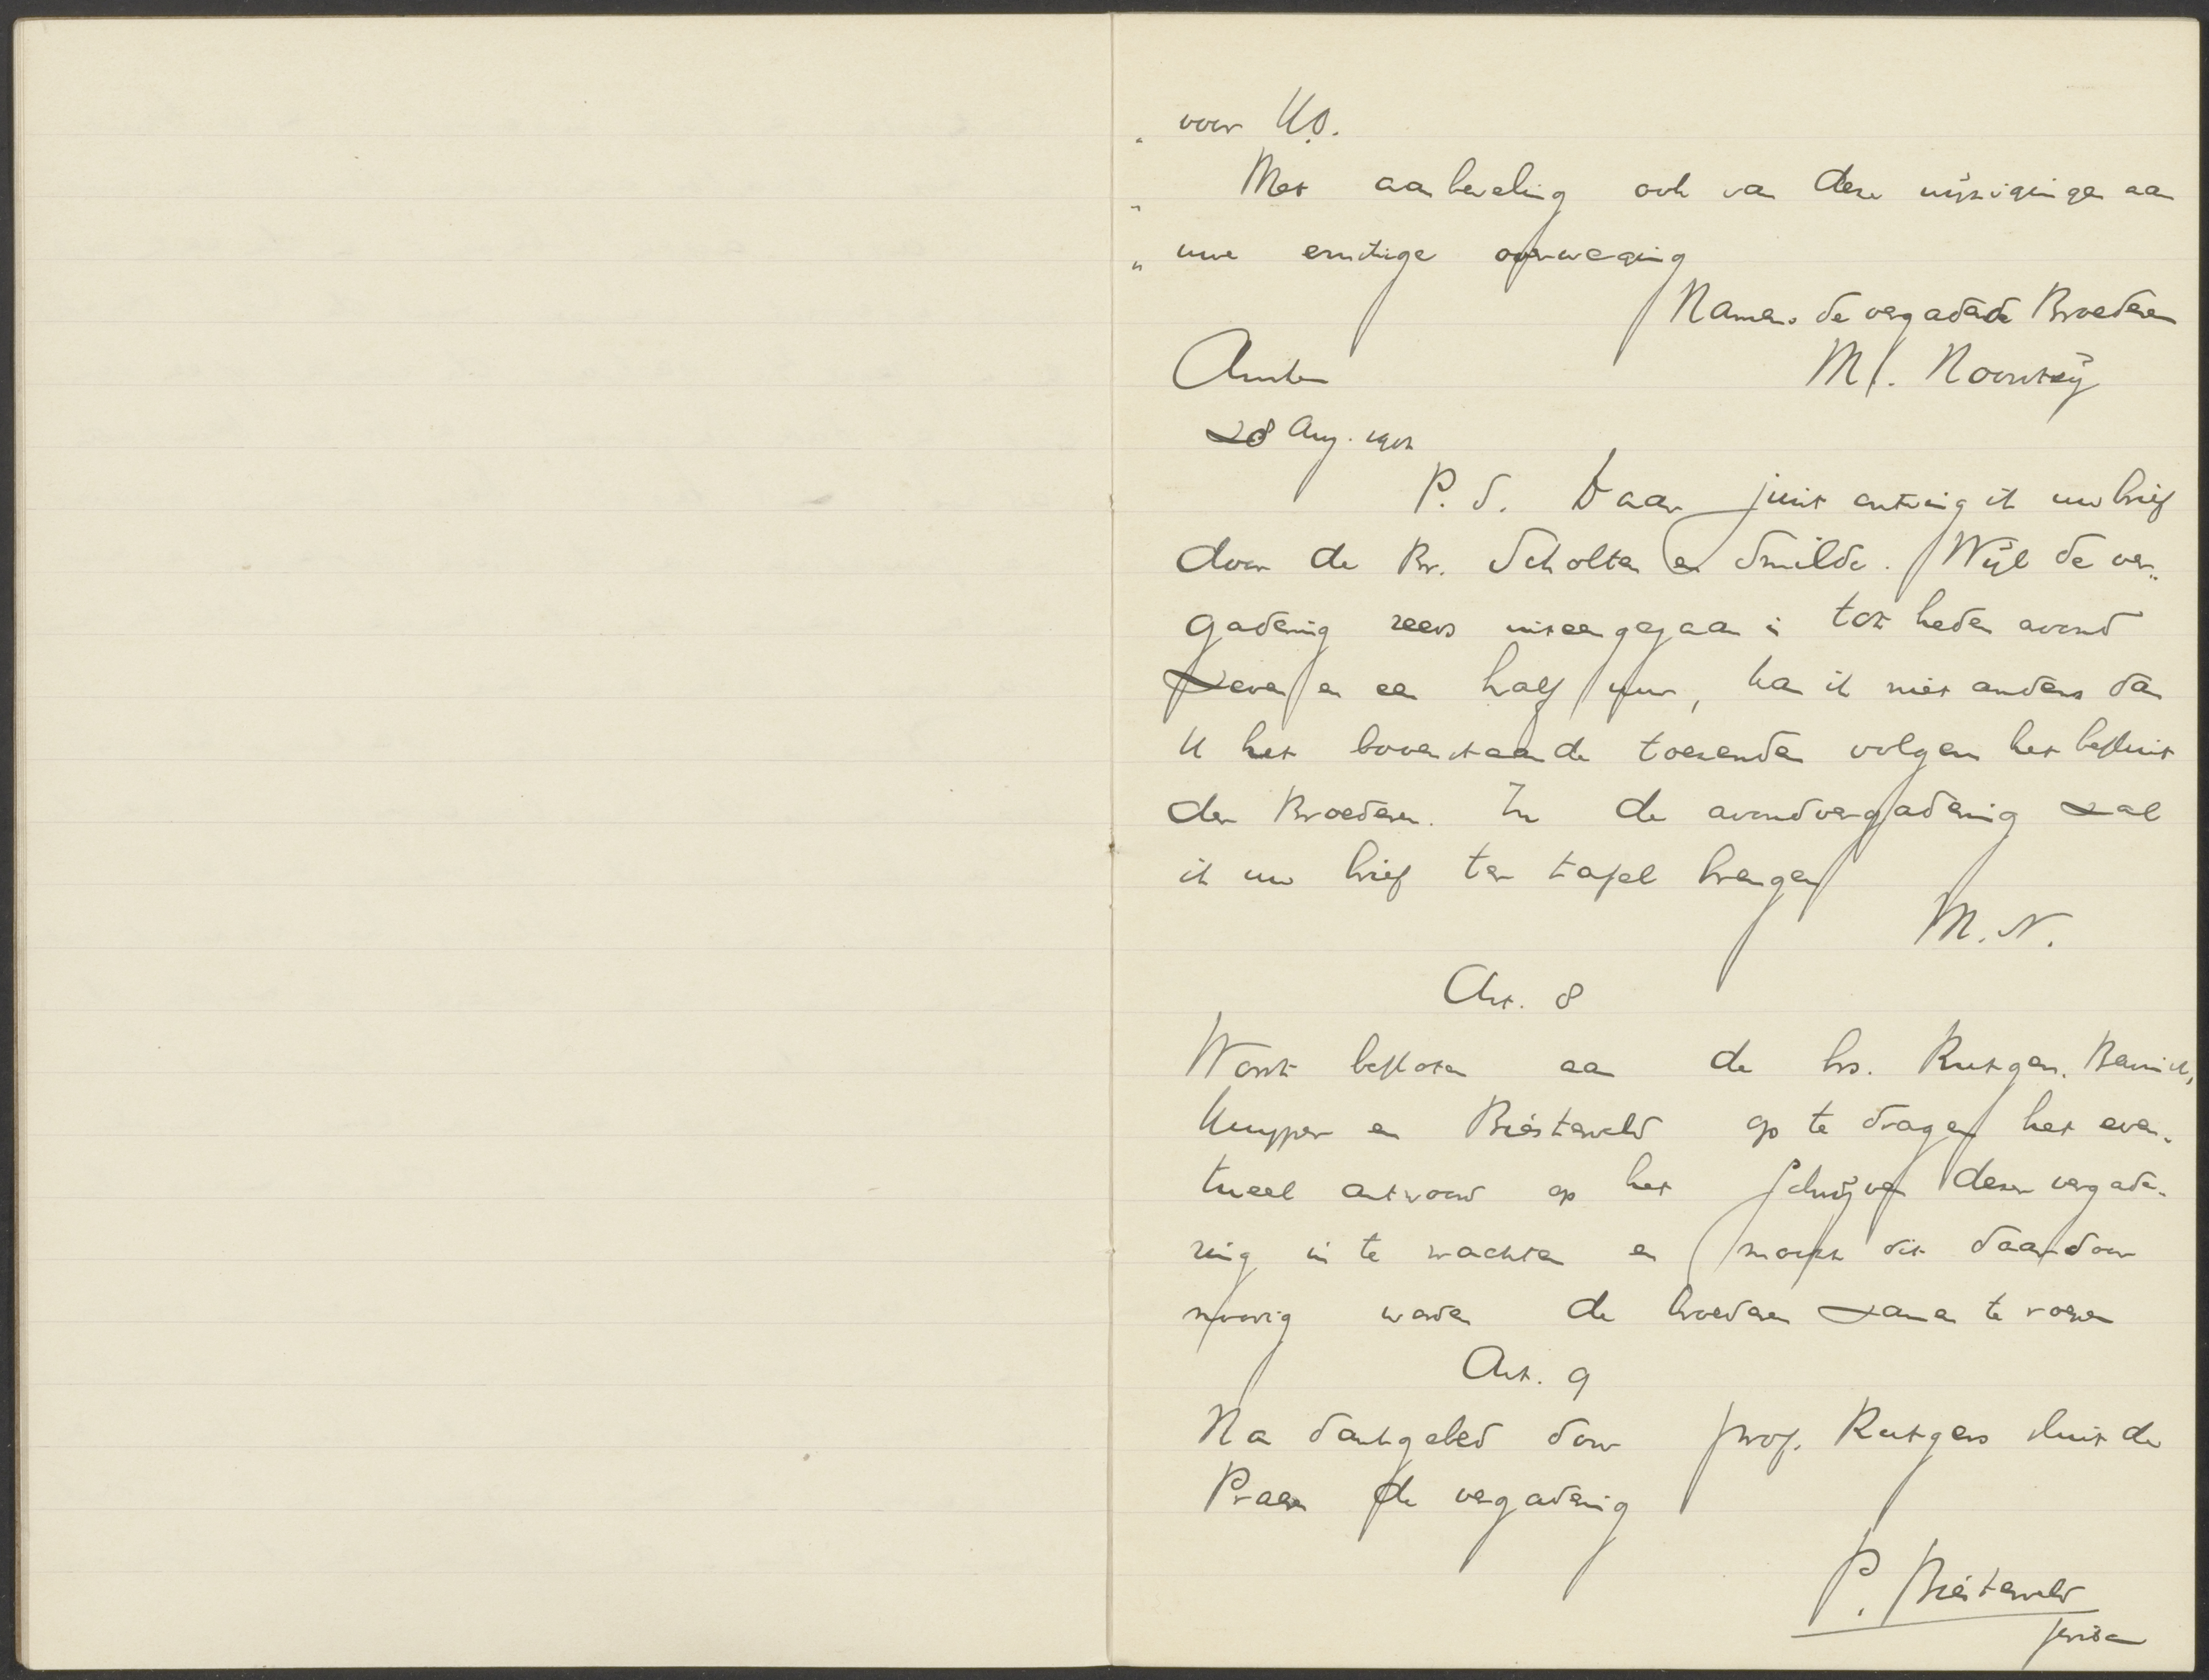 " voor U.
" Met aanbeveling ook van deze wijzigingen aan
" uwe ernstige overweging
Namens de vergaderde Broederen
Amsterdam M. Noordtzij
28 Aug. 1902
P.S. Daar juist ontving ik uw brief
door de Br. Scholten en Smilde. Wijl de ver-
gadering reeds uiteengegaan is tot heden avond
zeven en een half uur, kan ik niet anders dan
U het bovenstaande toezenden volgens het besluit
der Broederen. In de avondvergadering zal
ik uw brief ter tafel brengen
M.N.
Art. 8
Wordt besloten aan de hrs. Rutgers, Bavinck,
Kuyper en Biesterveld op te dragen het even-
tueel antwoord op het schrijven dezer vergade-
ring in te wachten en mocht dit daardoor
noodig worden de broederen samen te roepen
Art. 9
Na dankgebed door prof. Rutgers sluit de
Praeses de vergadering
P. Biesterveld
scriba